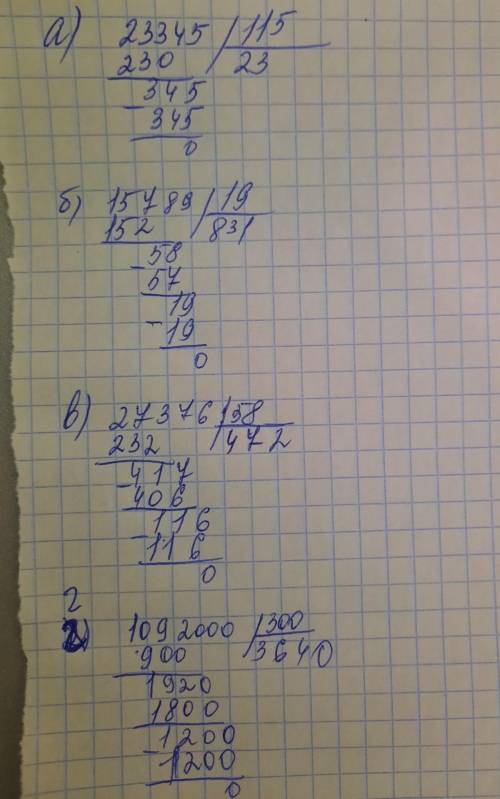 а) 23345 115
230 23
- 345
345
0
б) 15789 19
152 831
- 58
57
19
- 19
0
в) 27376 58
232 472
- 417
406
- 116
116
0
г
) 1092000 300
900 3640
1920
1800
- 1200
1200
0